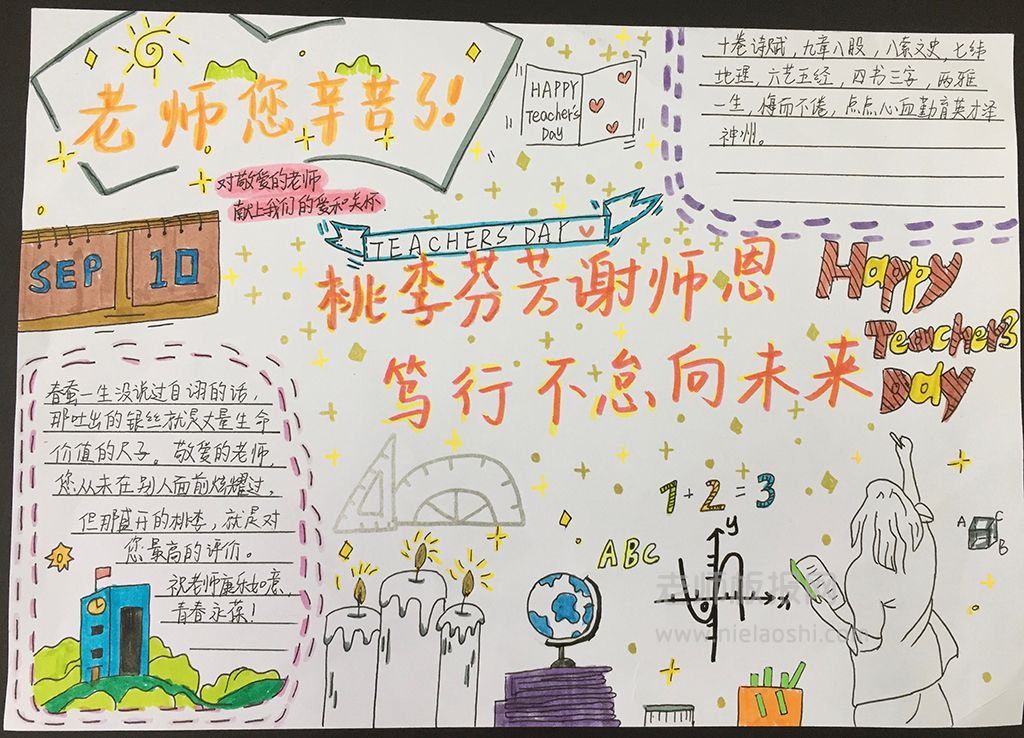 老师您辛苦了!
对敬爱的老师
献上我们的爱和关怀.
HAPPY
Teacher's
DAY
十卷诗赋,九章八股,八索文史,七纬
地理,六艺五经,四书三字,两雅
一生,悔而不倦,点点心血勤育英才泽
神州。
SEP 10
TEACHERS' DAY
桃李芬芳谢师恩
笃行不怠向未来
Happy
Teachers
Day
春蚕一生没说过自诩的话,
那吐出的银丝就是丈量生命
价值的尺子。敬爱的老师,
您从未在别人面前炫耀过,
但那盛开的桃李,就是对
您最高的评价。
祝老师康乐如意,
青春永葆!
1+2=3
ABC
y
x
A C
B
老师板报网
www.nielaoshi.com